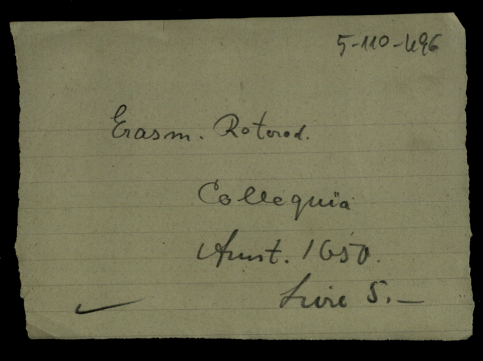 5-110-496
Erasm. Roterod.
Colloquia
Amst. 1650.
Lire 5.—